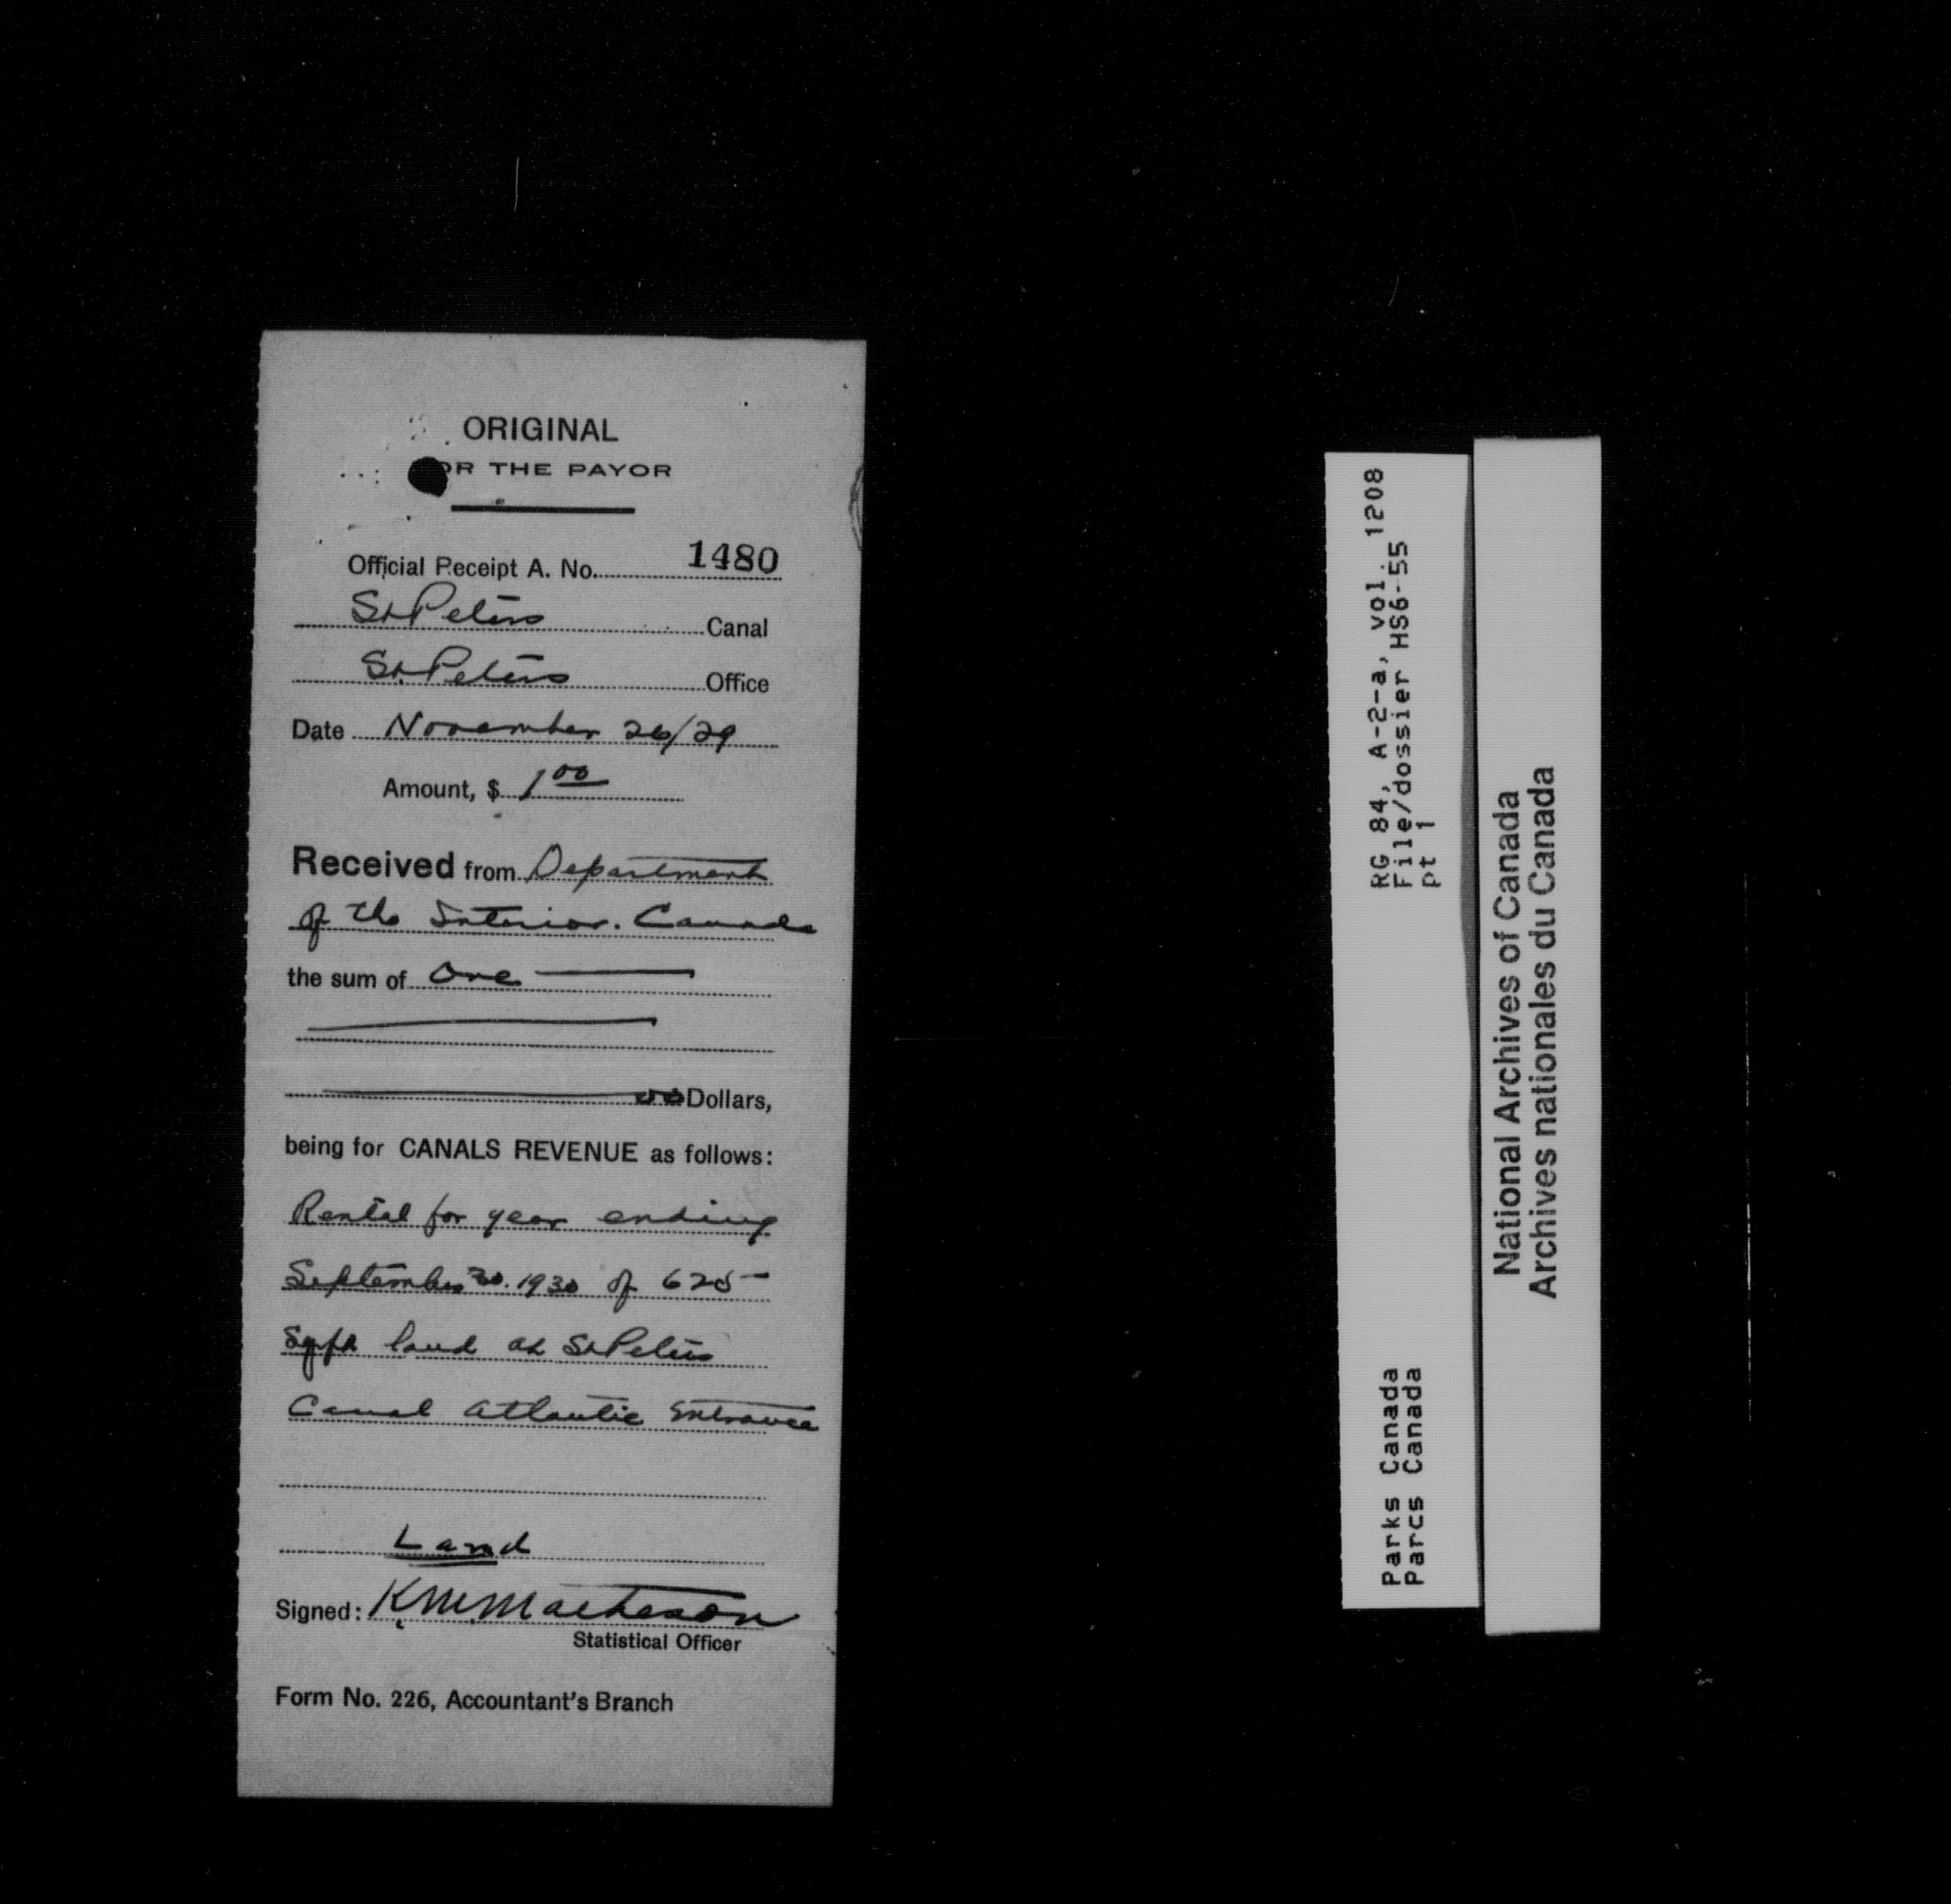 ORIGINAL
FOR THE PAYOR
Official Receipt A. No. 1480
St Peters Canal
St. Peters Office
Date November 26/29
Amount, $ 1 00
Received from Department
of the Interior. Canada
the sum of One
00 Dollars,
being for CANALS REVENUE as follows:
Rental for year ending
September 30. 1930 of 625
Sqft land at St Peters
Canal Atlantic Entrance
Land
Signed: K. M. Matheson
Statistical Officer
Form No. 226, Accountant's Branch
RG 84, A-2-a, vol. 1208
File/dossier HS6-55
pt 1
Parks Canada
Parcs Canada
National Archives of Canada
Archives nationales du Canada